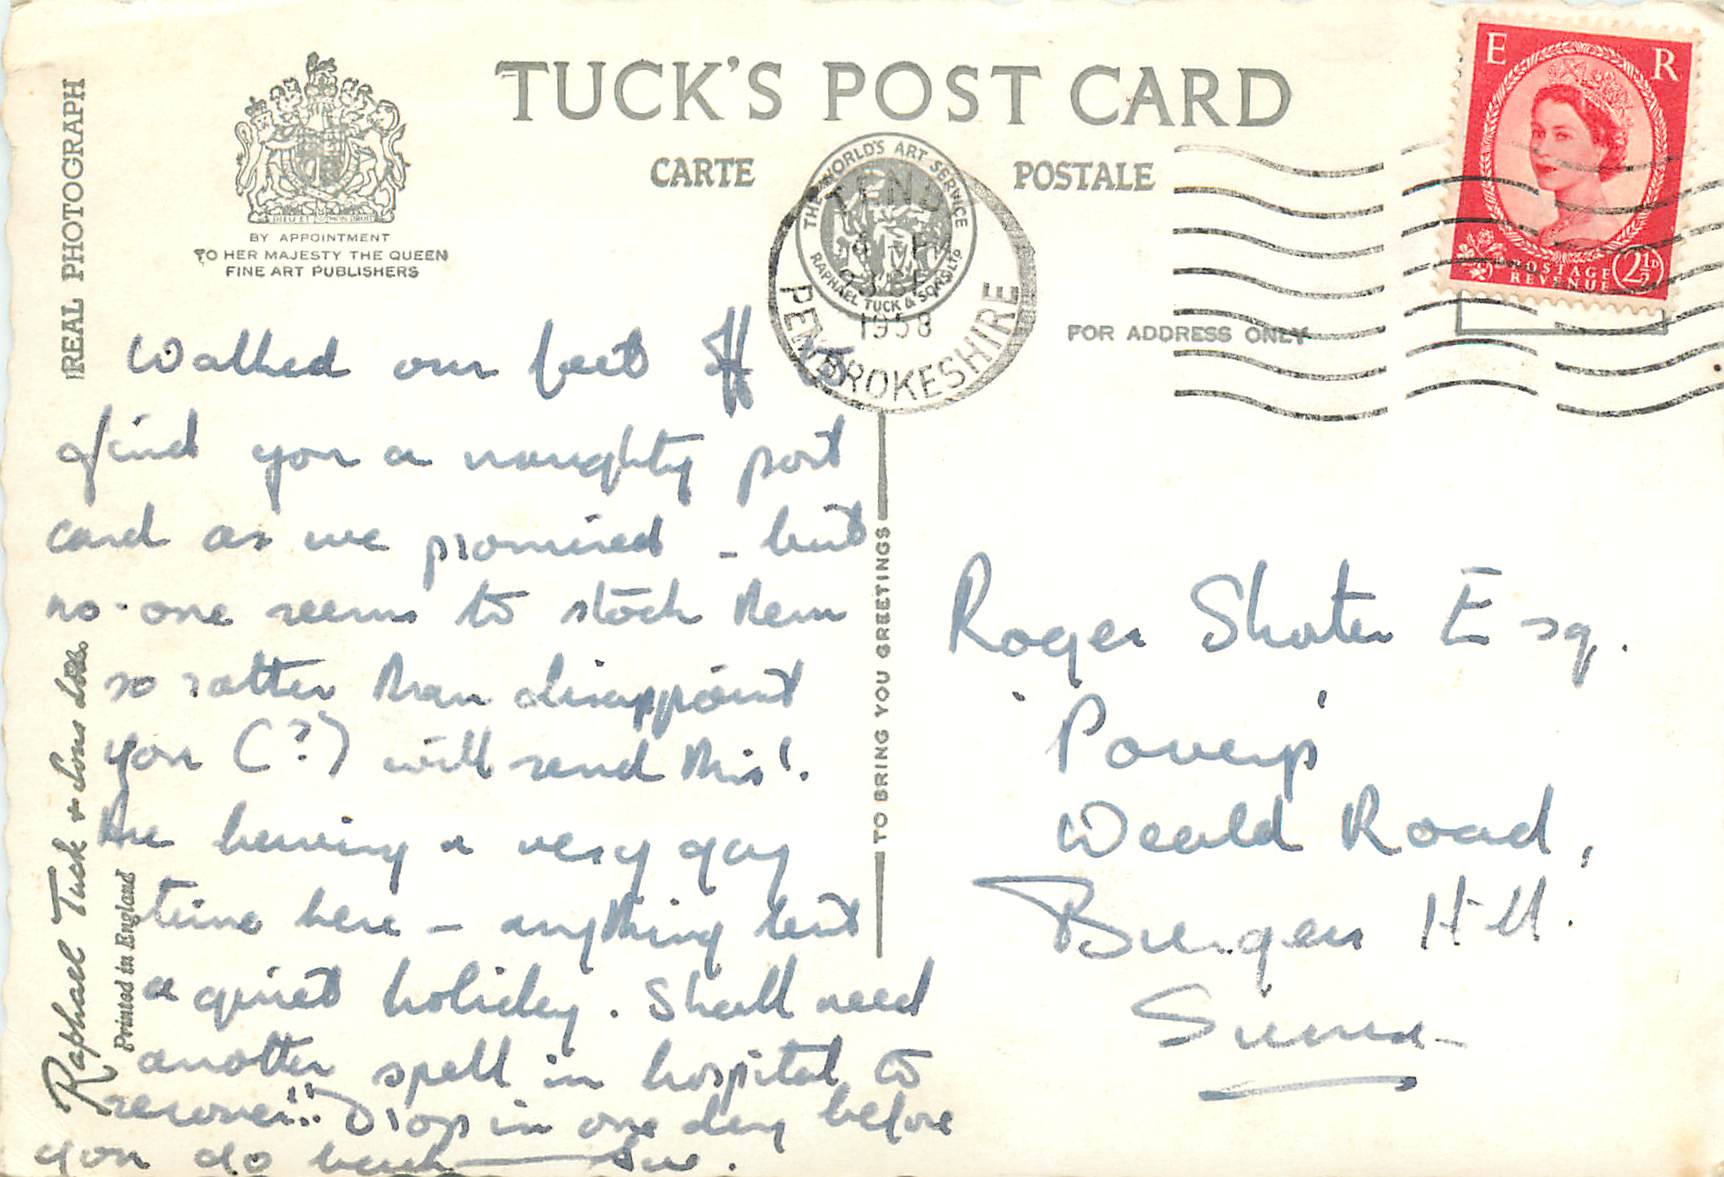 TUCK'S POST CARD
CARTE POSTALE
REAL PHOTOGRAPH
DIEU ET MON DROIT
BY APPOINTMENT
TO HER MAJESTY THE QUEEN
FINE ART PUBLISHERS
THE WORLD'S ART SERVICE
RAPHAEL TUCK & SONS LTD
TENBY
1958
PEMBROKESHIRE
E R
POSTAGE
REVENUE
2½D
FOR ADDRESS ONLY
Walked our feet off to
find you a naughty post
card as we promised - but
no-one seems to stock them
so rather than disappoint
you (?) will send this!.
Are having a very gay
time here - anything but
a quiet holiday. Shall need
another spell in hospital to
recover!!. Drop in one day before
you go back — Sue.
TO BRING YOU GREETINGS
Raphael Tuck & Sons Ltd.
Printed in England
Roger Shoter Esq.
'Poveys'
Weald Road,
Burgess Hill.
Sussex